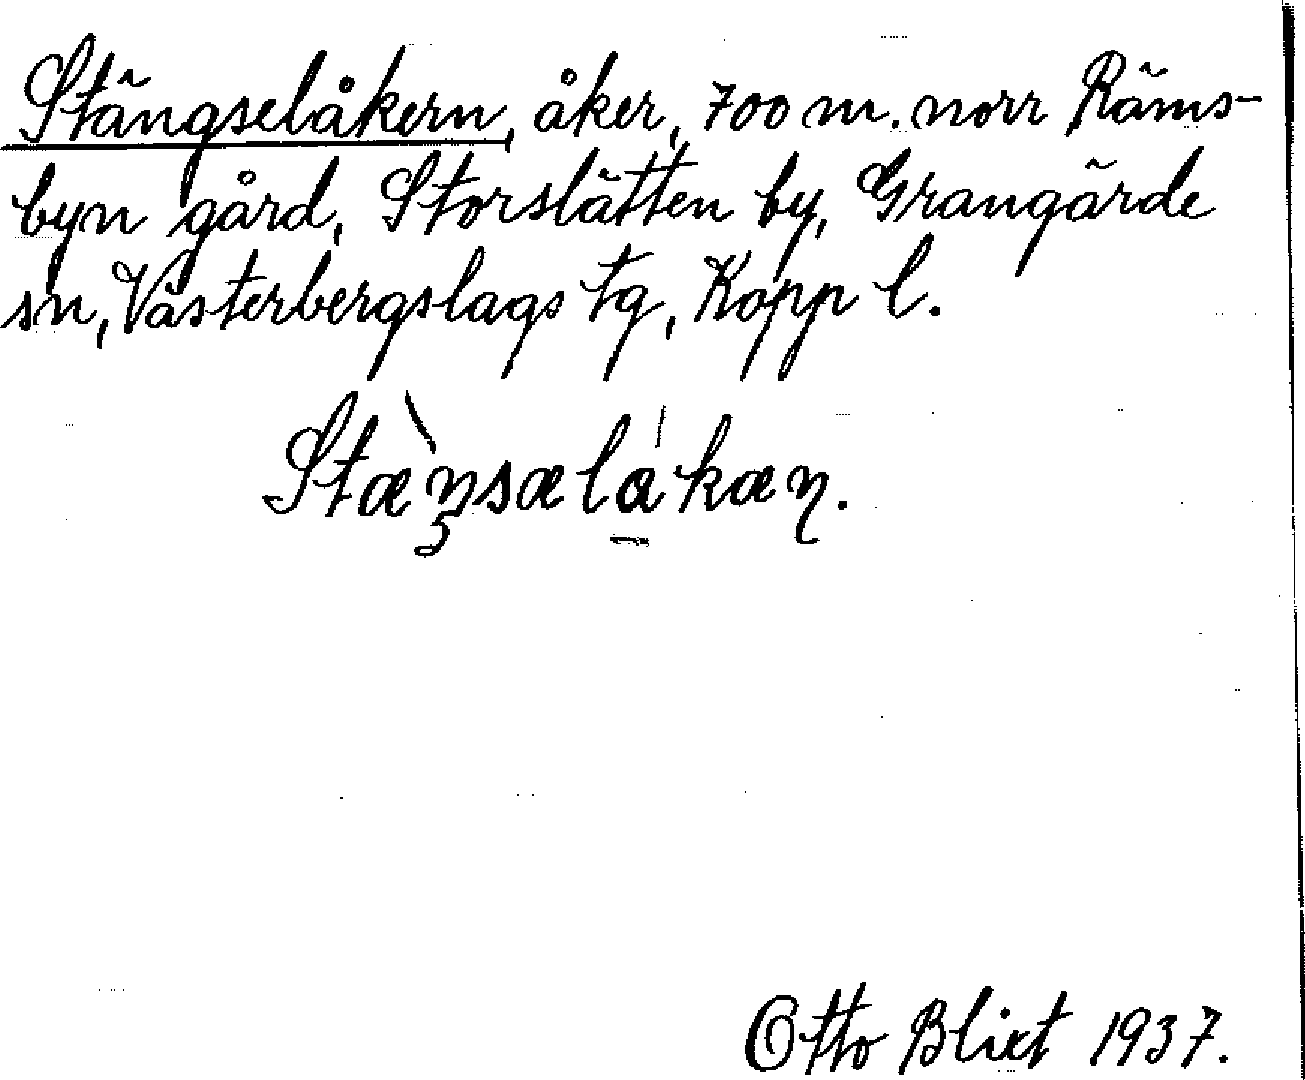 Stängselåkern, åker, 700 m. norr Räms-
byn gård, Storslätten by, Grangärde
sn, Västerbergslags tg, Kopp l.
Stæ̀ŋsælákæɳ.
Otto Blixt 1937.